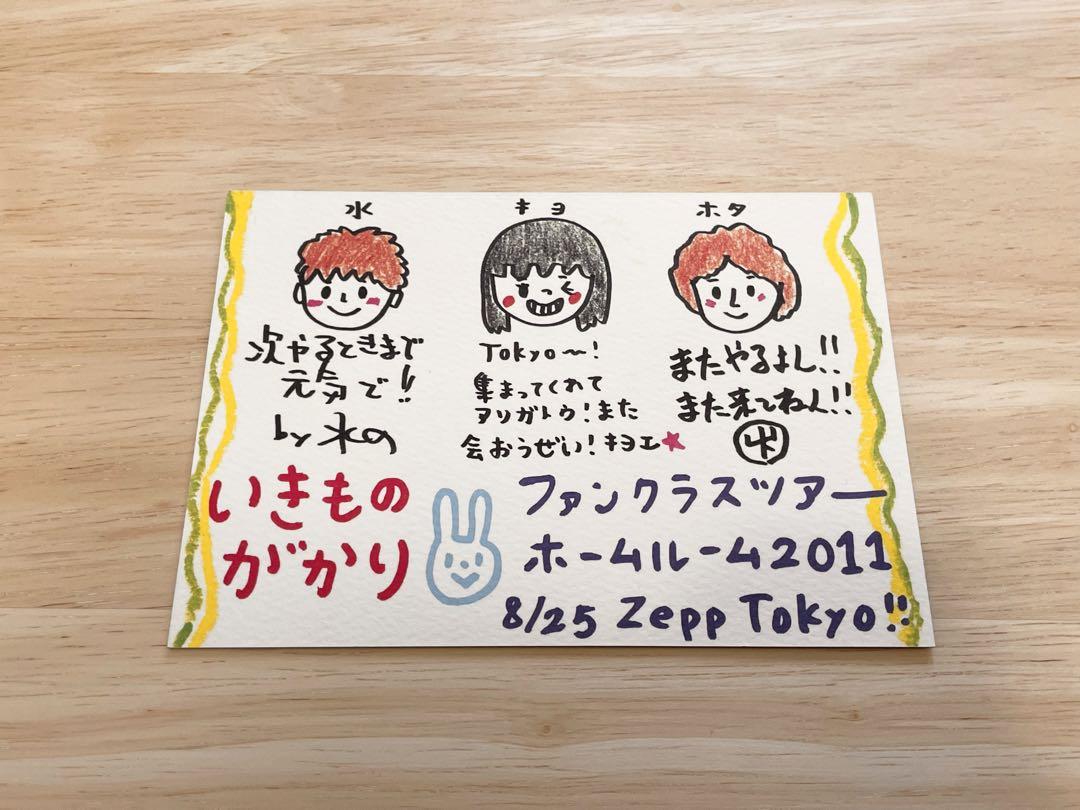 水
次やるときまで
元気で!!
by 水の
キヨ
Tokyo〜!
集まってくれて
アリガトウ!また
会おうぜい!キヨエ★
ホタ
またやるよし!!
また来てねん!!
いきもの
がかり
ファンクラスツアー
ホームルーム2011
8/25 Zepp Tokyo!!